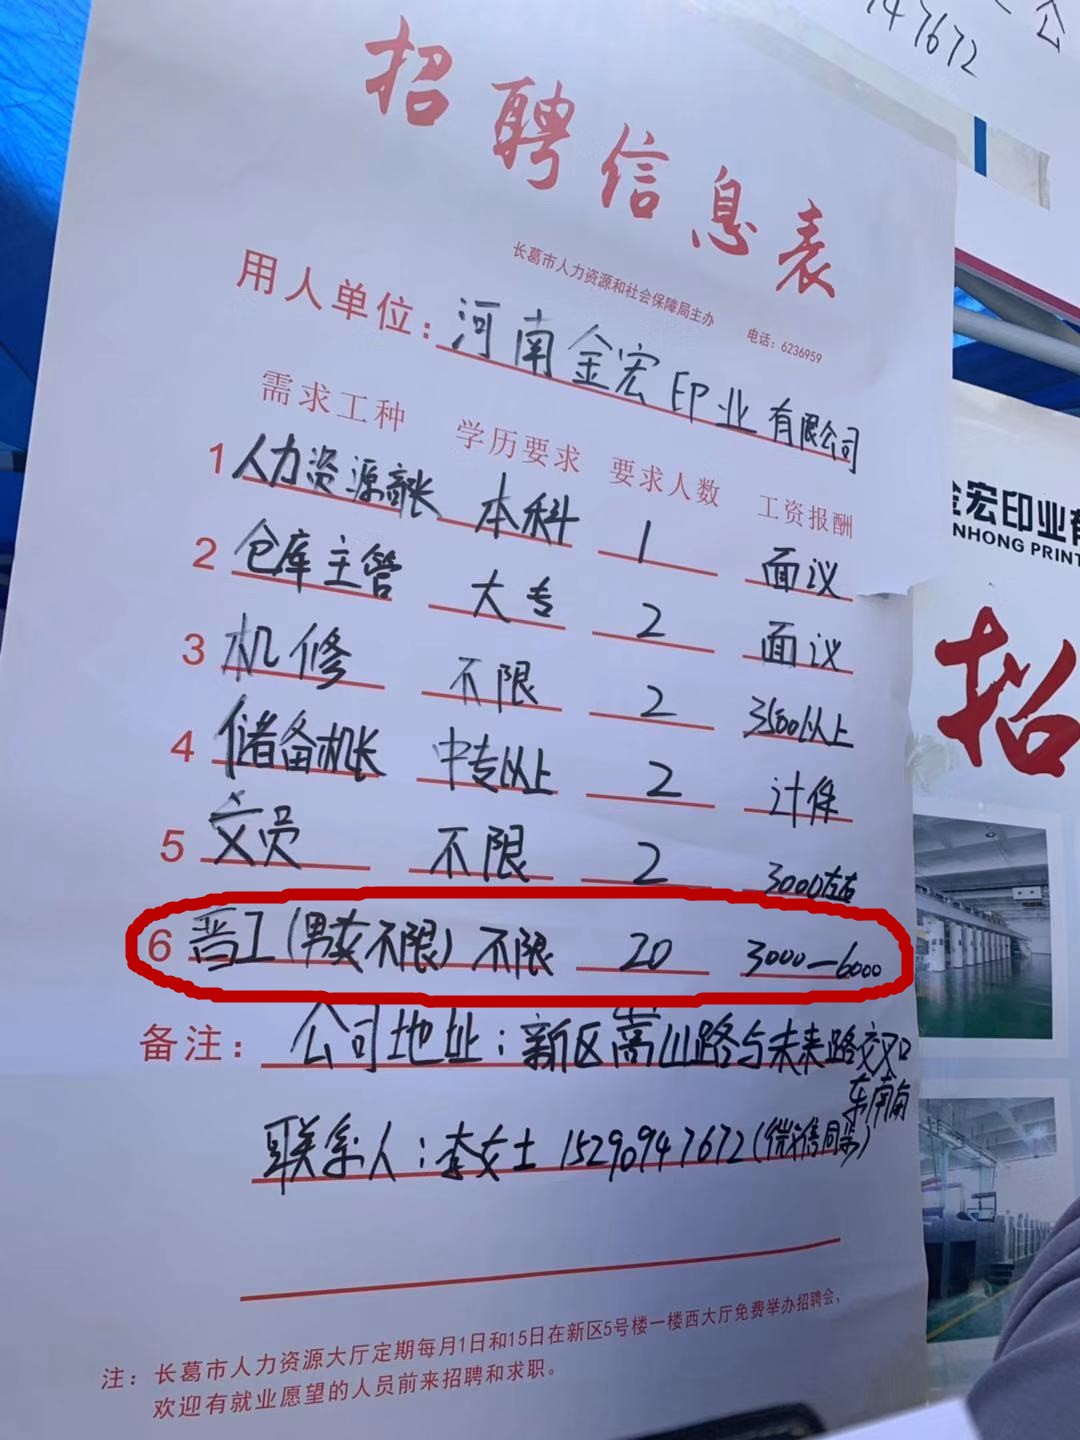 招聘信息表
长葛市人力资源和社会保障局主办 电话：6236959
用人单位：河南金宏印业有限公司
需求工种 学历要求 要求人数 工资报酬
1 人力资源部长 本科 1 面议
2 仓库主管 大专 2 面议
3 机修 不限 2 3500以上
4 储备机长 中专以上 2 计件
5 文员 不限 2 3000左右
6 普工(男女不限) 不限 20 3000—6000
备注：公司地址：新区嵩山路与未来路交叉口
东南角
联系人：李女士 15290947672(微信同号)
注：长葛市人力资源大厅定期每月1日和15日在新区5号楼一楼西大厅免费举办招聘会，
欢迎有就业愿望的人员前来招聘和求职。
公
47672
金宏印业有
NHONG PRINT
招